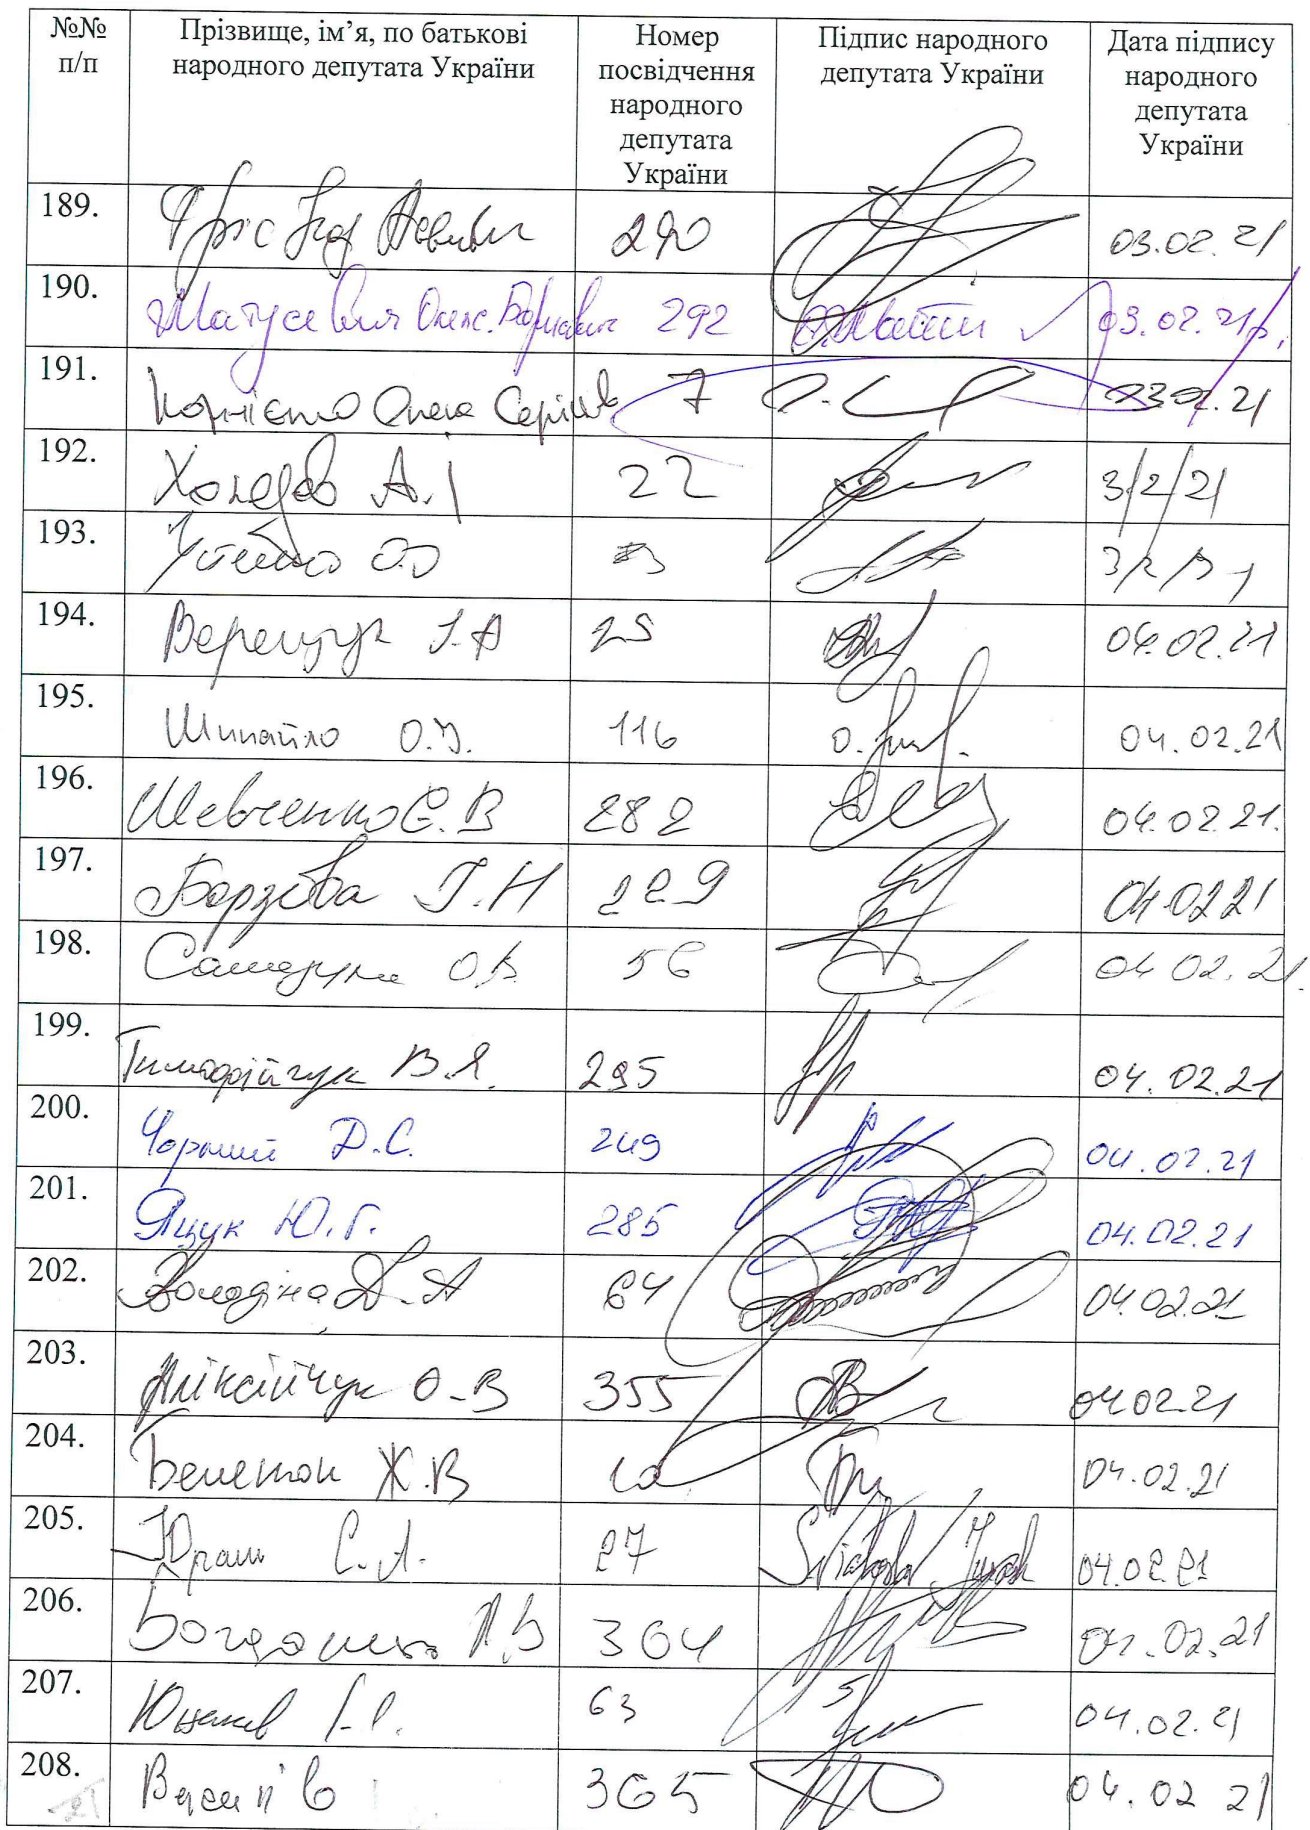 №№ п/п Прізвище, ім’я, по батькові народного депутата України Номер посвідчення народного депутата України Підпис народного депутата України Дата підпису народного депутата України
189. Фріс Ігор Павлович 290 03.02.21
190. Матусевич Олекс. Борисович 292 03.02.21р.
191. Корнієнко Олекс Сергійов 7 03.02.21
192. Холодов А.І 22 3/2/21
193. Устенко О.О 3/2/21
194. Верещук І.А 25 04.02.21
195. Шипайло О.І. 116 04.02.21
196. Шевченко Є.В 282 04.02.21.
197. Борзова І.Н 229 04.02.21
198. О.В. 56 04 02.21.
199. Тимофійчук В.Я. 295 04.02.21
200. Чорний Д.С. 249 04.02.21
201. Яцик Ю.Г. 285 04.02.21
202. Володіна Д.А 64 04.02.21
203. Аліксійчук О-В 355 04.02.21
204. Ж.В 04.02.21
205. Юраш С.А. 27 04.02.21
206. Богданець А.В 364 04.02.21
207. Юнаков І.С. 63 04.02.21
208. Василів 365 04.02 21